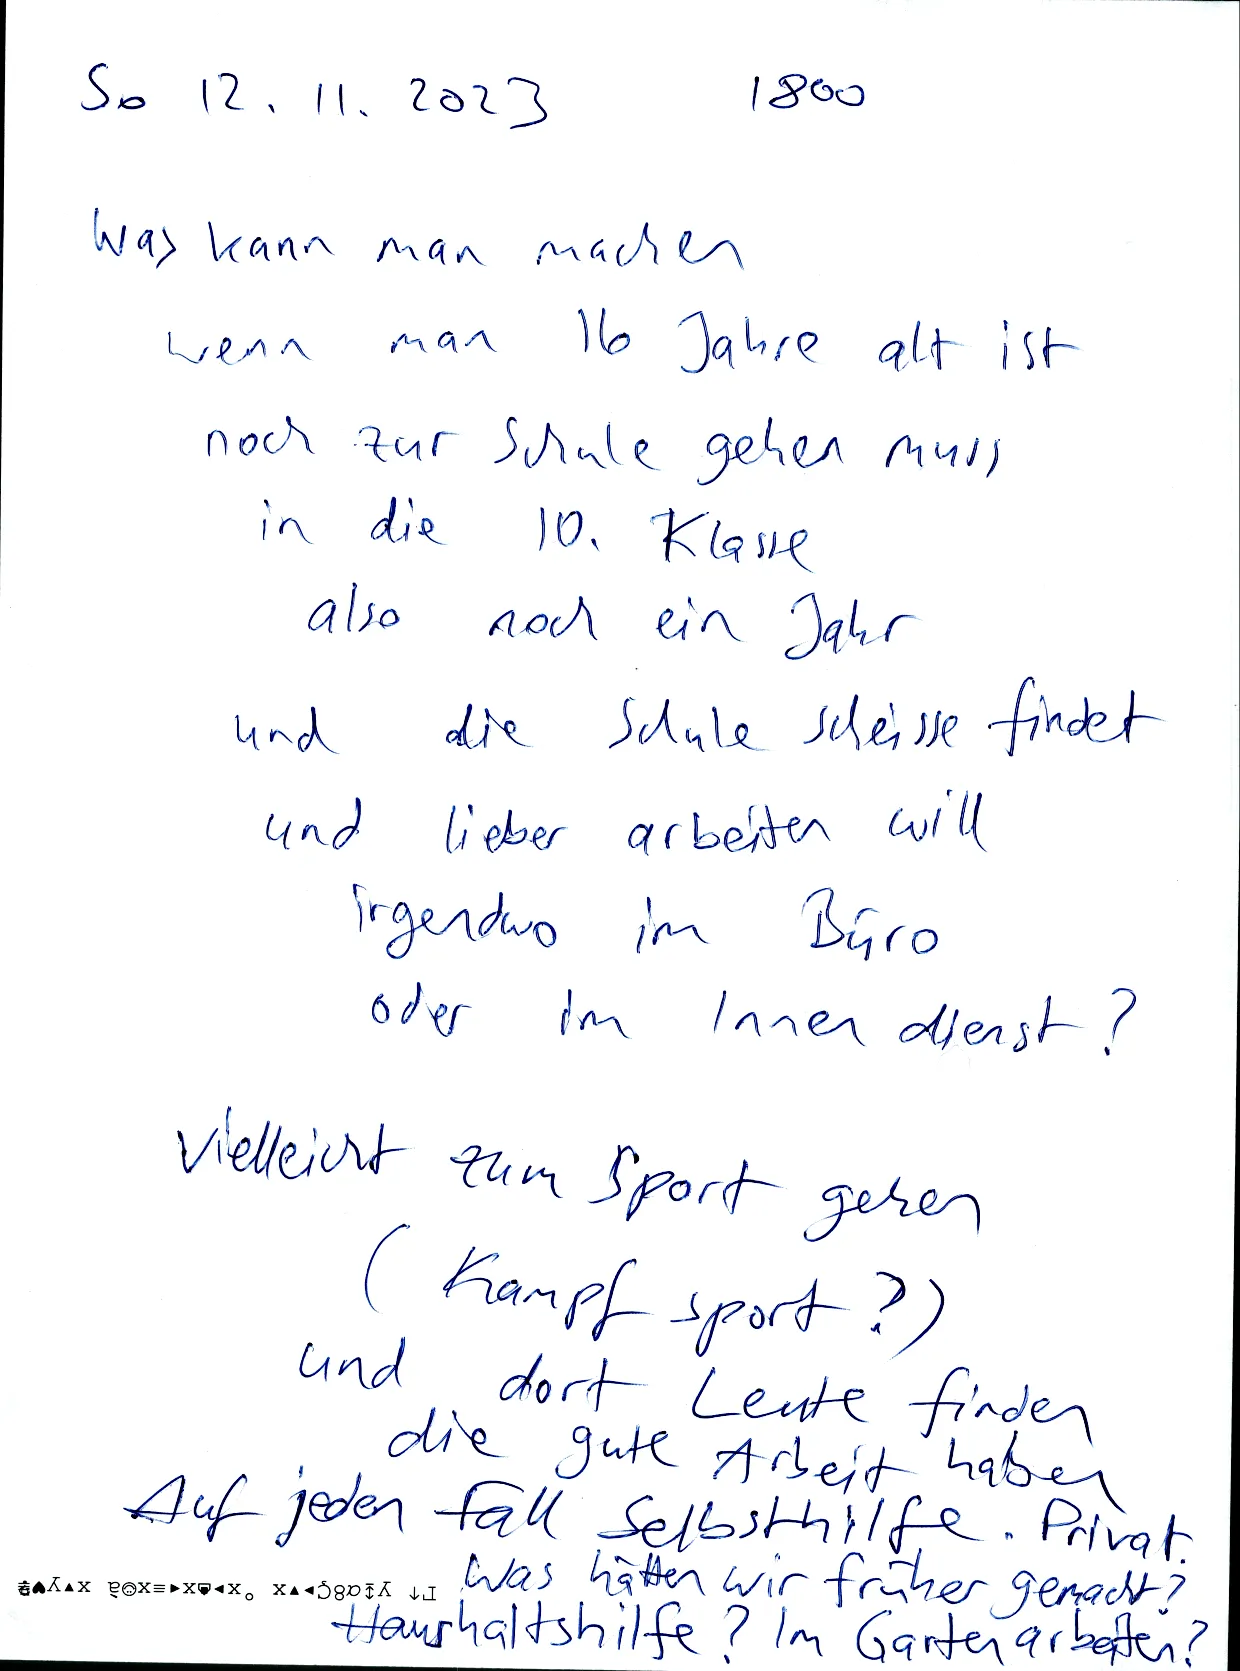 So 12. 11. 2023 1800
Was kann man machen
wenn man 16 Jahre alt ist
noch zur Schule gehen muss
in die 10. Klasse
also noch ein Jahr
und die Schule scheisse findet
und lieber arbeiten will
irgendwo im Büro
oder im Innendienst?
Vielleicht zum Sport gehen
(Kampfsport?)
und dort Leute finden
die gute Arbeit haben
Auf jeden Fall Selbsthilfe. Privat.
Was hätten wir früher gemacht?
Haushaltshilfe? Im Garten arbeiten?